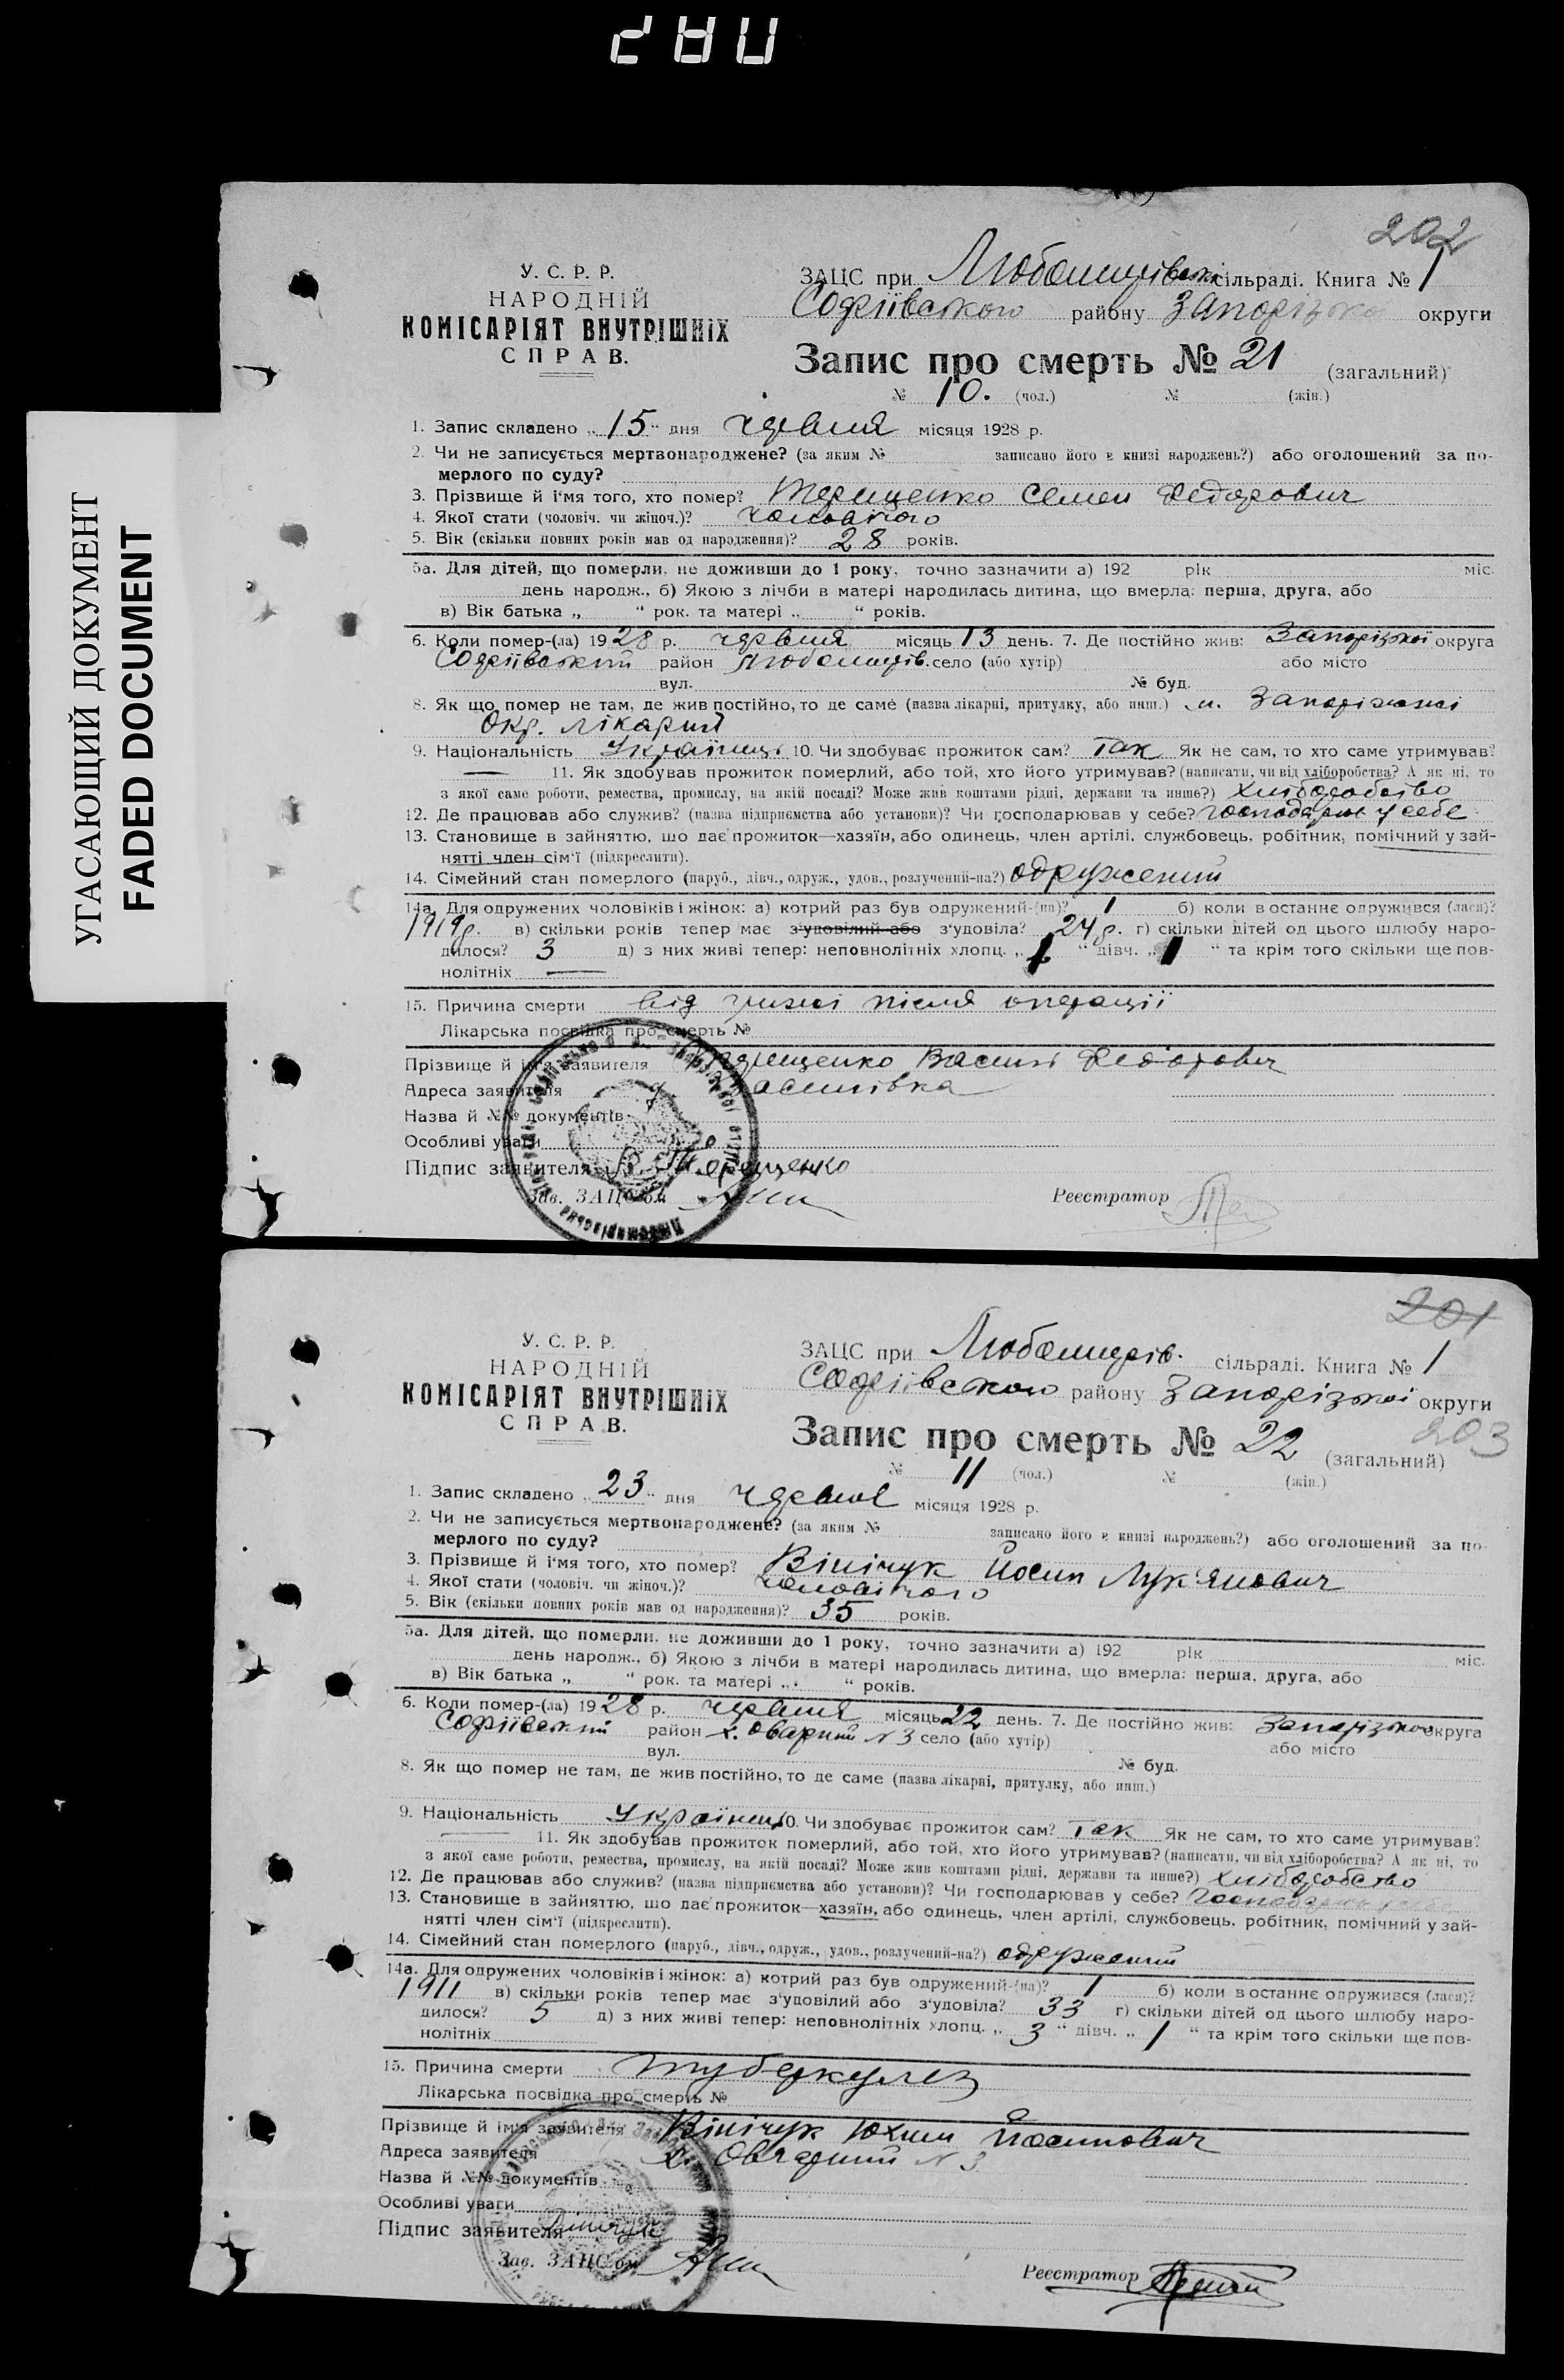 202
У. С. Р. Р.
НАРОДНІЙ
КОМІСАРІЯТ ВНУТРІШНІХ
СПРАВ.
ЗАЦС при Любомирівській сільраді. Книга № 1
Софіївського району Запорізької округи
Запис про смерть № 21 (загальний)
№ 10. (чол.) № (жін.)
УГАСАЮЩИЙ ДОКУМЕНТ
FADED DOCUMENT
1. Запис складено „15“ дня червня місяця 1928 р.
2. Чи не записується мертвонароджене? (за яким № записано його в книзі народжень?) або оголошений за по-
мерлого по суду?
3. Прізвище й ім‘я того, хто помер? Терещенко Семен Федорович
4. Якої стати (чоловіч. чи жіноч.)? чоловічого
5. Вік (скільки повних років мав од народження)? 28 років.
5а. Для дітей, що померли, не доживши до 1 року, точно зазначити а) 192 рік міс.
день народж., б) Якою з лічби в матері народилась дитина, що вмерла: перша, друга, або
в) Вік батька „ “ рок. та матері „ “ років.
6. Коли помер-(ла) 1928 р. червня місяць 13 день. 7. Де постійно жив: Запорізької округа
Софіївський район Любомирів. село (або хутір) або місто
вул. № буд.
8. Як що помер не там, де жив постійно, то де саме (назва лікарні, притулку, або инш.) м. Запоріжжі
Окр. лікарні
9. Національність Українець 10. Чи здобуває прожиток сам? Так Як не сам, то хто саме утримував?
— 11. Як здобував прожиток померлий, або той, хто його утримував? (написати, чи від хліборобства? А як ні, то
з якої саме роботи, ремества, промислу, на якій посаді? Може жив коштами рідні, держави та инше?) хліборобство
12. Де працював або служив? (назва підприємства або установи)? Чи господарював у себе? господарює у себе
13. Становище в зайняттю, шо дає прожиток—хазяїн, або одинець, член артілі, службовець, робітник, помічний у зай-
нятті член сім‘ї (підкреслити).
14. Сімейний стан померлого (паруб., дівч., одруж., удов., розлучений-на?) одружений
14а. Для одружених чоловіків і жінок: а) котрий раз був одружений-(на)? 1 б) коли в останнє опружився (лася)?
1919р. в) скільки років тепер має з‘удовілий або з‘удовіла? 24р. г) скільки дітей од цього шлюбу наро-
дилося? 3 д) з них живі тепер: неповнолітніх хлопц. „ 1 “ дівч. „ 1 “ та крім того скільки ще пов-
нолітніх —
15. Причина смерти від грижі після операції
Лікарська посвідка про смерть №
Прізвище й ім‘я заявителя Терещенко Василь Федорович
Адреса заявителя Василівка
Назва й №№ документів
Особливі уваги
Підпис заявителя В. Терещенко
Зав. ЗАЦС‘ом Реєстратор
201
У. С. Р. Р.
НАРОДНІЙ
КОМІСАРІЯТ ВНУТРІШНІХ
СПРАВ.
ЗАЦС при Любомирів. сільраді. Книга № 1
Софіївського району Запорізької округи
203
Запис про смерть № 22 (загальний)
№ 11 (чол.) № (жін.)
1. Запис складено „23“ дня червня місяця 1928 р.
2. Чи не записується мертвонароджене? (за яким № записано його в книзі народжень?) або оголошений за по-
мерлого по суду?
3. Прізвище й ім‘я того, хто помер? Вінічук Йосип Лук‘янович
4. Якої стати (чоловіч. чи жіноч.)? чоловічого
5. Вік (скільки повних років мав од народження)? 35 років.
5а. Для дітей, що померли, не доживши до 1 року, точно зазначити а) 192 рік міс.
день народж., б) Якою з лічби в матері народилась дитина, що вмерла: перша, друга, або
в) Вік батька „ “ рок. та матері „ “ років.
6. Коли помер-(ла) 1928 р. червня місяць 22 день. 7. Де постійно жив: Запорізької округа
Софіївський район х. Овчарний N 3 село (або хутір) або місто
вул. № буд.
8. Як що помер не там, де жив постійно, то де саме (назва лікарні, притулку, або инш.)
9. Національність Українець 10. Чи здобуває прожиток сам? Так Як не сам, то хто саме утримував?
— 11. Як здобував прожиток померлий, або той, хто його утримував? (написати, чи від хліборобства? А як ні, то
з якої саме роботи, ремества, промислу, на якій посаді? Може жив коштами рідні, держави та инше?) хліборобство
12. Де працював або служив? (назва підприємства або установи)? Чи господарював у себе? господарює у себе
13. Становище в зайняттю, шо дає прожиток—хазяїн, або одинець, член артілі, службовець, робітник, помічний у зай-
нятті член сім‘ї (підкреслити).
14. Сімейний стан померлого (паруб., дівч., одруж., удов., розлучений-на?) одружений
14а. Для одружених чоловіків і жінок: а) котрий раз був одружений-(на)? 1 б) коли в останнє опружився (лася)?
1911 в) скільки років тепер має з‘удовілий або з‘удовіла? 33 г) скільки дітей од цього шлюбу наро-
дилося? 5 д) з них живі тепер: неповнолітніх хлопц. „ 3 “ дівч. „ 1 “ та крім того скільки ще пов-
нолітніх
15. Причина смерти туберкульоз
Лікарська посвідка про смерть №
Прізвище й ім‘я заявителя Вінічук Юхим Йосипович
Адреса заявителя х. Овчарний N 3
Назва й №№ документів
Особливі уваги
Підпис заявителя Вінічук
Зав. ЗАЦС‘ом Реєстратор